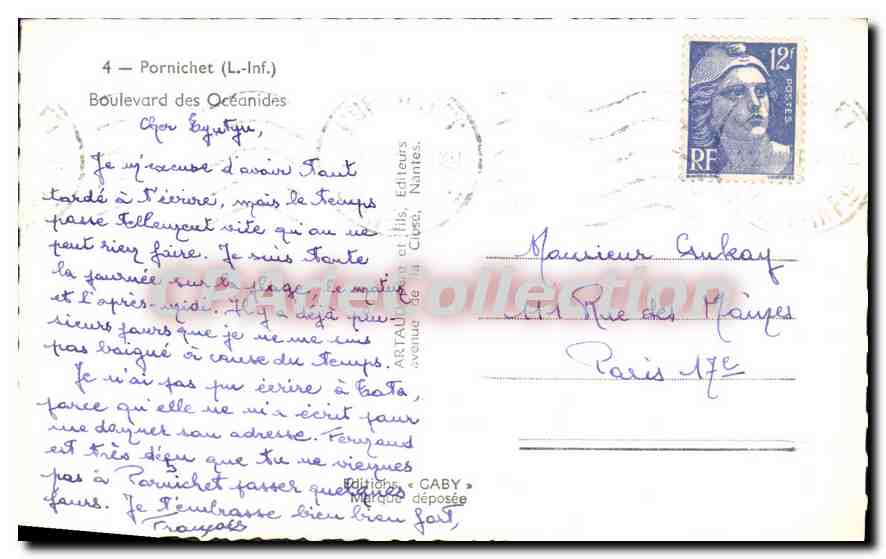 4 — Pornichet (L.-Inf.)
Boulevard des Océanides
Cher
Je m'excuse d'avoir tant
tardé à t'écrire, mais le temps
passe tellement vite qu'on ne
peut rien faire. Je suis toute
la journée sur la plage, le matin
et l'après-midi. Il y a déjà plu-
sieurs jours que je ne me suis
pas baigné à cause du temps.
Je n'ai pas pu écrire à Tata,
parce qu'elle ne m'a écrit pour
me donner son adresse. Fernand
est très déçu que tu ne viennes
pas à Pornichet passer quelques
jours. Je t'embrasse bien bien fort,
François
ARTAUD et fils, Editeurs
avenue de la Close, Nantes.
Editions « GABY »
Marque déposée
12F
POSTES
RF
Monsieur
111 Rue des
Paris 17e
CPAdeCollection